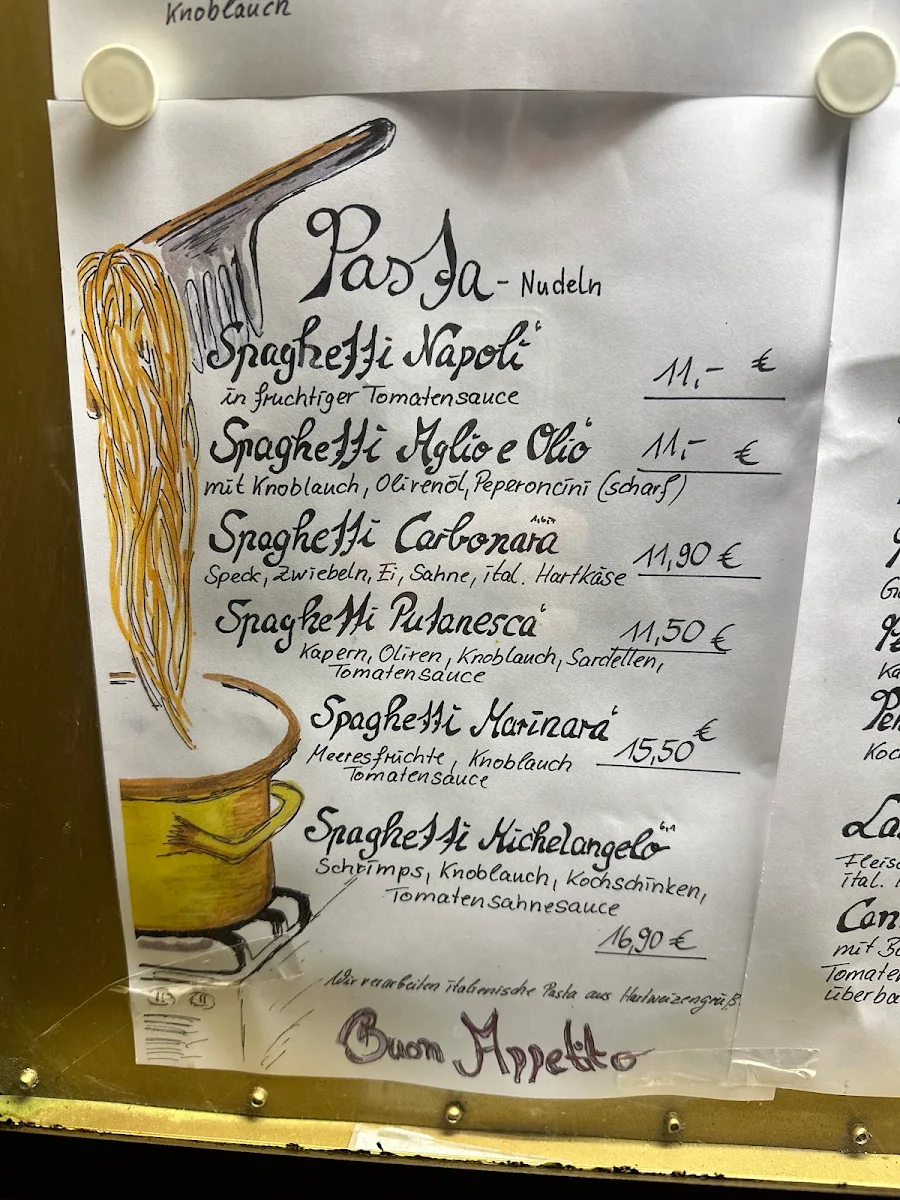 Knoblauch
Pasta - Nudeln
Spaghetti Napoli⁶
11,- €
in fruchtiger Tomatensauce
Spaghetti Aglio e Olio⁶
11,- €
mit Knoblauch, Olivenöl, Peperoncini (scharf)
Spaghetti Carbonara
11,90 €
Speck, Zwiebeln, Ei, Sahne, ital. Hartkäse
Spaghetti Putanesca⁶
11,50 €
Kapern, Oliven, Knoblauch, Sardellen,
Tomatensauce
Spaghetti Marinara⁶
15,50 €
Meeresfrüchte, Knoblauch
Tomatensauce
Spaghetti Michelangelo⁶·¹
Schrimps, Knoblauch, Kochschinken,
Tomatensahnesauce
16,90 €
Wir verarbeiten italienische Pasta aus Hartweizengrieß.
Buon Appetito
ital.
mit
überba